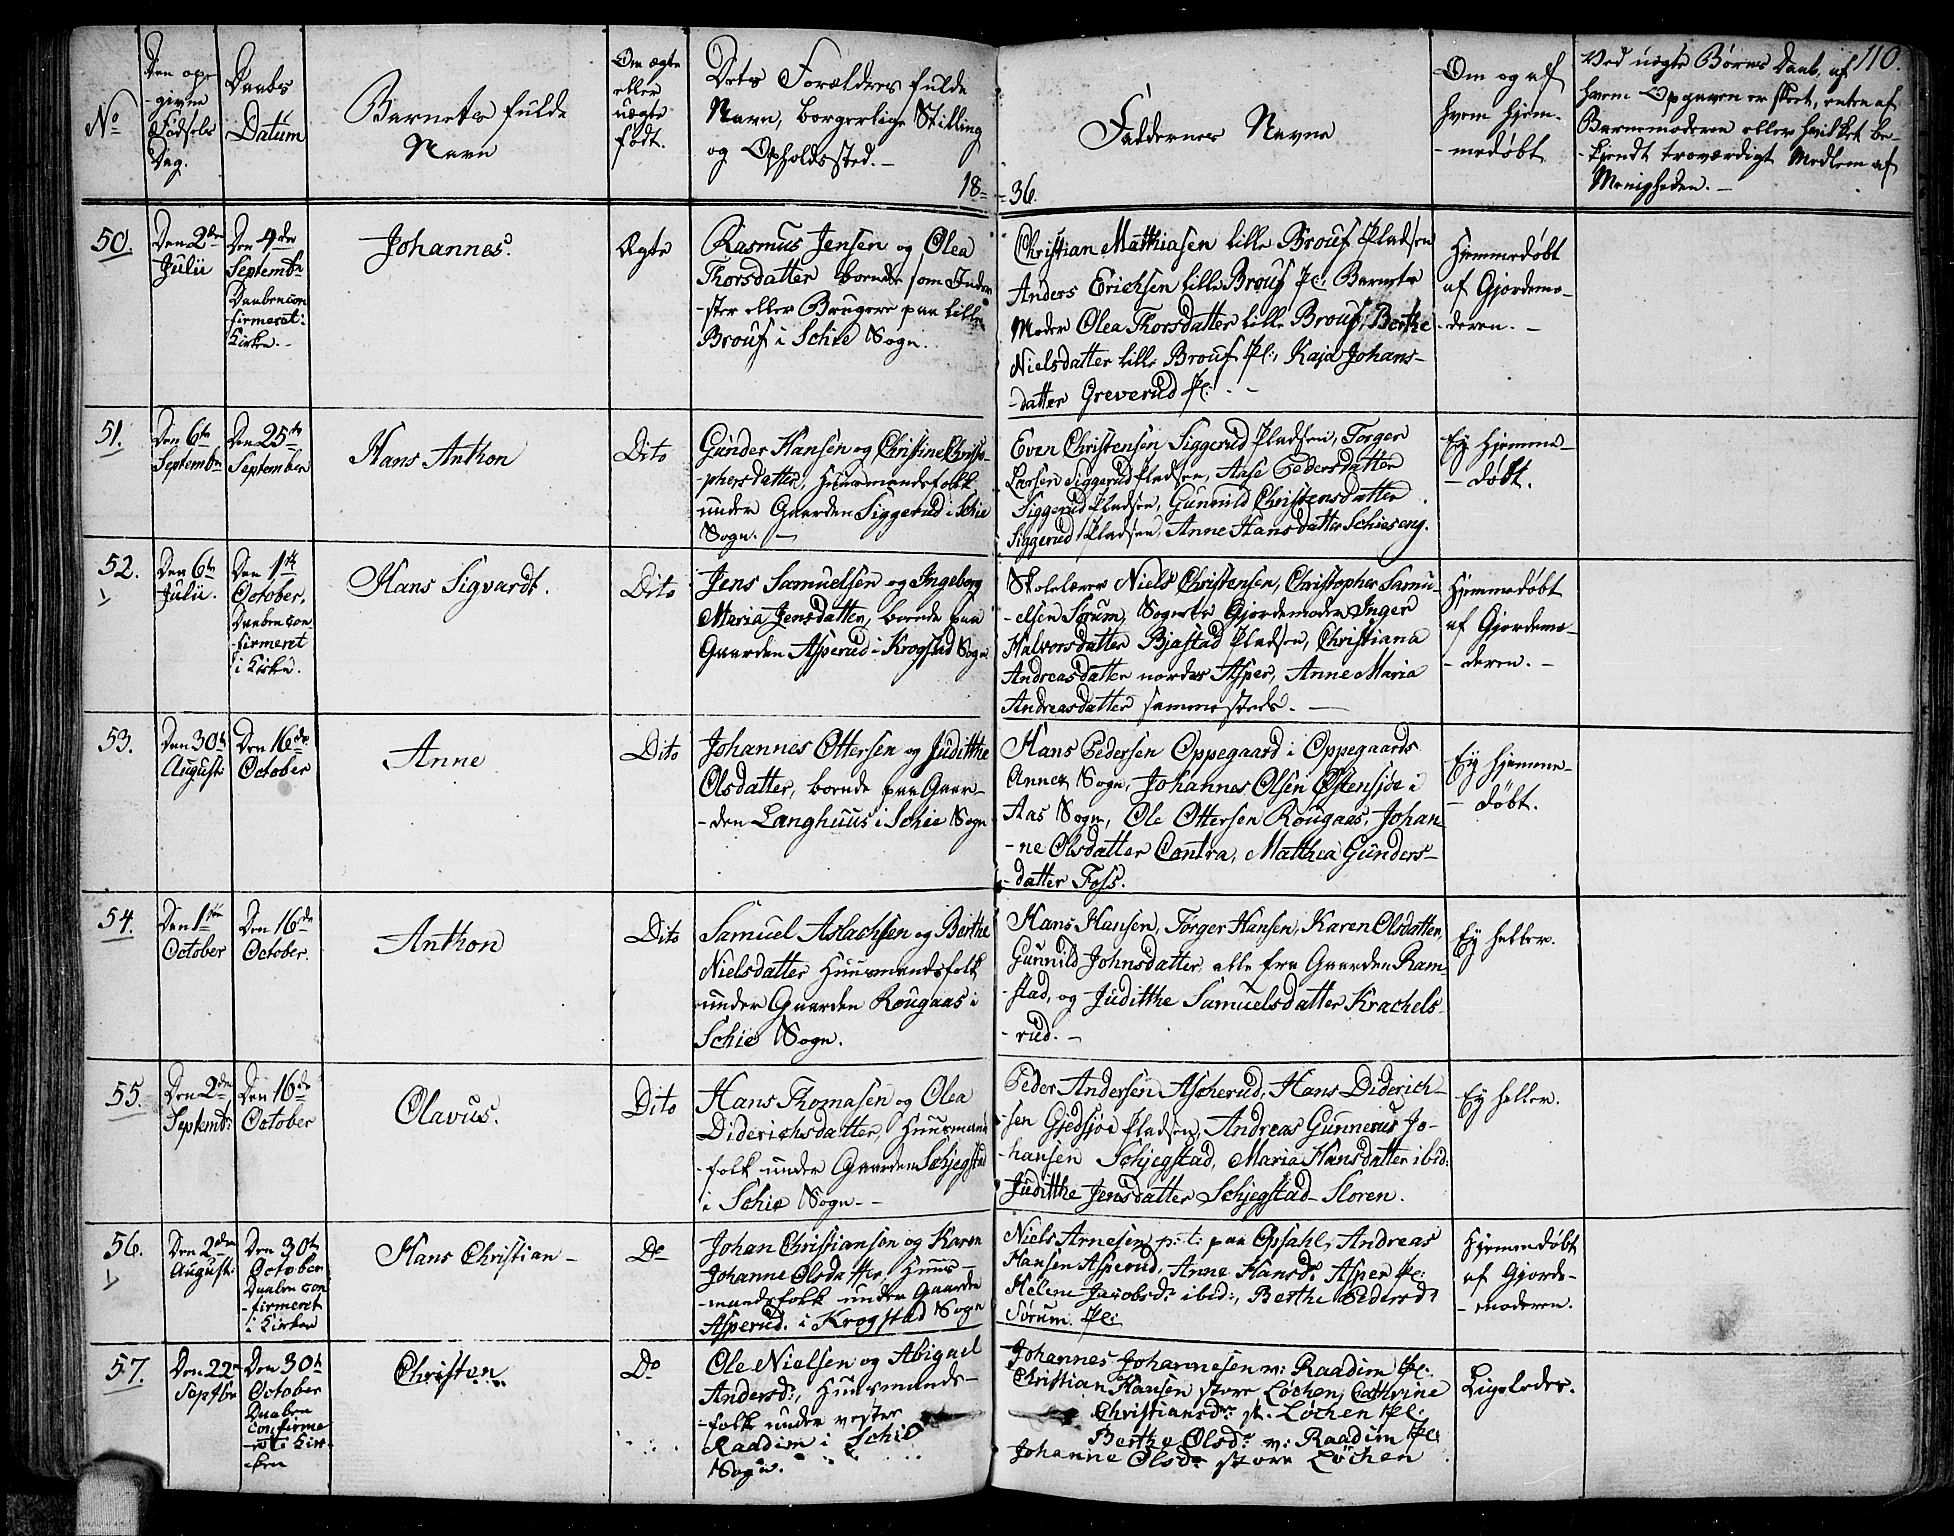 110.
No
Den op-
givne
Fødsels
Dag.
Daabs
Datum
Barnets fulde
Navn
Om ægte
eller
uægte
født.
Dets Forældres fulde
Navn, borgerlige Stilling
og Opholdssted. -
18-
-36.
Faddernes Navne
Om og af
hvem hjem-
-medøbt
Ved uægte Børns Daab, af
hvem Opgaven er skeet, enten af
Barnemoderen eller hvilket be-
-kjendt troværdigt Medlem af
Menigheden. -
50.
Den 2den
Julii
Den 4de
Septembr
Daaben con
firmeret i
Kirke. -
Johannes.
Ægte
Rasmus Jensen og Olea
Thorsdatter boende som Inder-
-ster eller Brugere paa lille
Brouf i Schie Sogn.
Christian Matthiasen lille Brouf Pladsen
Anders Erichsen lille Brouf Pl: Barnets
Moder Olea Thorsdatter lille Brouf, Berthe
Nielsdatter lille Brouf Pl:, Kaja Johans-
-datter Greverud Pl: -
Hjemmedøbt
af Gjordemo-
-deren. -
51.
Den 6te
Septembr
Den 25de
September
Hans Anthon
Dito
Gunder Hansen og Christine Christo-
-phersdatter, Huusmandsfolk
under Gaarden Siggerud i Schie
Sogn. -
Even Christensen Siggerud Pladsen, Torger
Larsen Siggerud Pladsen, Aase Pedersdatter
Siggerud Pladsen, Gunnild Christensdatter
Siggerud Pladsen, Anne Hansdatter Schieseng.
Ey hjemme-
-døbt.
52.
Den 6te
Julii.
Den 1ste
October,
Daaben con-
-firmeret
i Kirke.
Hans Sigvardt.
Dito
Jens Samuelsen og Ingeborg
Maria Jensdatter, boende paa
Gaarden Asperud i Krogstad Sogn
Skolelærer Niels Christensen, Christopher Samu-
-elsen Sørum, Sognets Gjordemoder Inger
Halvorsdatter Bjastad Pladsen, Christiana
Andreasdatter nordre Asper, Anne Maria
Andreasdatter sammesteds. -
Hjemmedøbt
af Gjordemo-
-deren. -
53.
Den 30te
August
Den 16de
October
Anne
Dito
Johannes Ottersen og Juditthe
Olsdatter, boende paa Gaar-
-den Langhuus i Schie Sogn
Hans Pedersen Oppegaard i Oppegaards
Annex Sogn, Johannes Olsen Østensjøe i
Aas Sogn, Ole Ottersen Rougaas, Johan-
-ne Olsdatter Contra, Matthea Gunders-
-datter Foss.
Ey hjemme-
-døbt.
54.
Den 1ste
October
Den 16de
October.
Anthon
Dito
Samuel Aslachsen og Berthe
Nielsdatter Huusmandsfolk
under Gaarden Rougaas i
Schie Sogn.
Hans Hansen, Torger Hansen, Karen Olsdatter,
Gunnild Johnsdatter, alle fra Gaarden Ram-
-stad, og Juditthe Samuelsdatter Krachels-
-rud. -
Ey heller.
55.
Den 2den
Septemb:
Den 16de
October
Olavus.
Dito
Hans Thomasen og Olea
Diderichsdatter, Huusmands-
-folk under Gaarden Schjegstad
i Schie Sogn. -
Peder Andersen Ascherud, Hans Diderich-
-sen Gjedsjøe Pladsen, Andreas Gunnerus Jo-
-hansen Schjegstad, Maria Hansdatter ibid:
Juditthe Jensdatter Schjegstad-Sloren.
Ey heller.
56.
Den 2den
August:
Den 30te
October
Daaben con
-firmeret
i Kirken
Hans Christian -
Do
Johan Christiansen og Karen
Johanne Olsdatter, Huus-
-mandsfolk under Gaarden
Asperud i Krogstad Sogn
Niels Arnesen p: t: paa Opsahl, Andreas
Hansen Asperud, Anne Hansdr Asper Pl:
Helene Jacobsdr ibid:, Berthe Pedersdr
Sørum Pl:
Hjemmedøbt
af Gjorde-
-moderen.
57.
Den 22
Septbr
Den 30te
October
Daaben
confirme
-ret i Kir-
ken
Christen
Do
Ole Nielsen og Abigael
Andersd:, Huusmands-
-folk under vestre
Raadim i Schie
Sogn.
Johannes Johannesen v: Raadim Pl:
Christian Hansen store Løchen, Cathrine
Christiansdr st. Løchen Pl:
Berthe Olsdr v: Raadim Pl:
Johanne Olsdr store Løchen
Ligeledes.